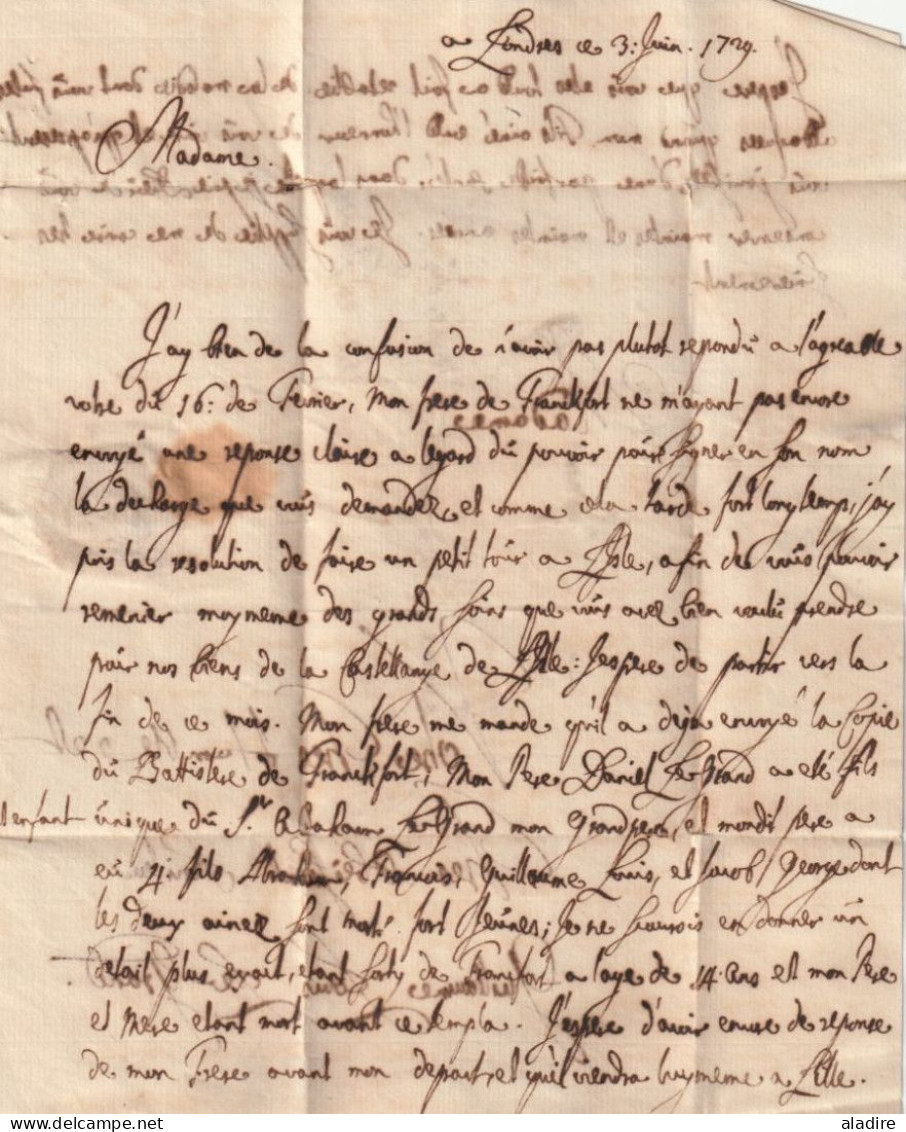 a Londres ce 3: Juin. 1729.
Madame.
J'ay bien de la confusion de n'avoir pas plutot repondu a l'agreable
votre du 16: de Fevrier, Mon frere de Franckfort ne m'ayant pas encore
envoyé une reponse claire a legard du pouvoir pour signer en son nom
la decharge que vous demandez, et comme cela tarde fort longtemp, j'ay
pris la resolution de faire un petit tour a Lisle, afin de vous pouvoir
remercier moymeme des grands soins que vous avez bien voulu prendre
pour nos biens de la Castellanye de Lille: Jespere de partir vers la
fin de ce mois. Mon frere me mande qu'il a deja envoyé la Copie
du Battistere de Franckfort, Mon Pere Daniel LeGrand a eté fils
et enfant unique du Sr. Abraham LeGrand mon Grandpere, et mondit pere a
eu 4 fils Abraham, Francois, Guillaume Louis, et Jacob George dont
les deux ainez sont morts fort jeunes; Je ne saurois en donner un
detail plus exact, etant sorty de Francfort a l'age de 14 ans et mon Pere
et Mere etant mort avant ce temp la. J'espere d'avoir encore de reponse
de mon Frere avant mon depart, et qu'il viendra luymeme a Lille.
aladire